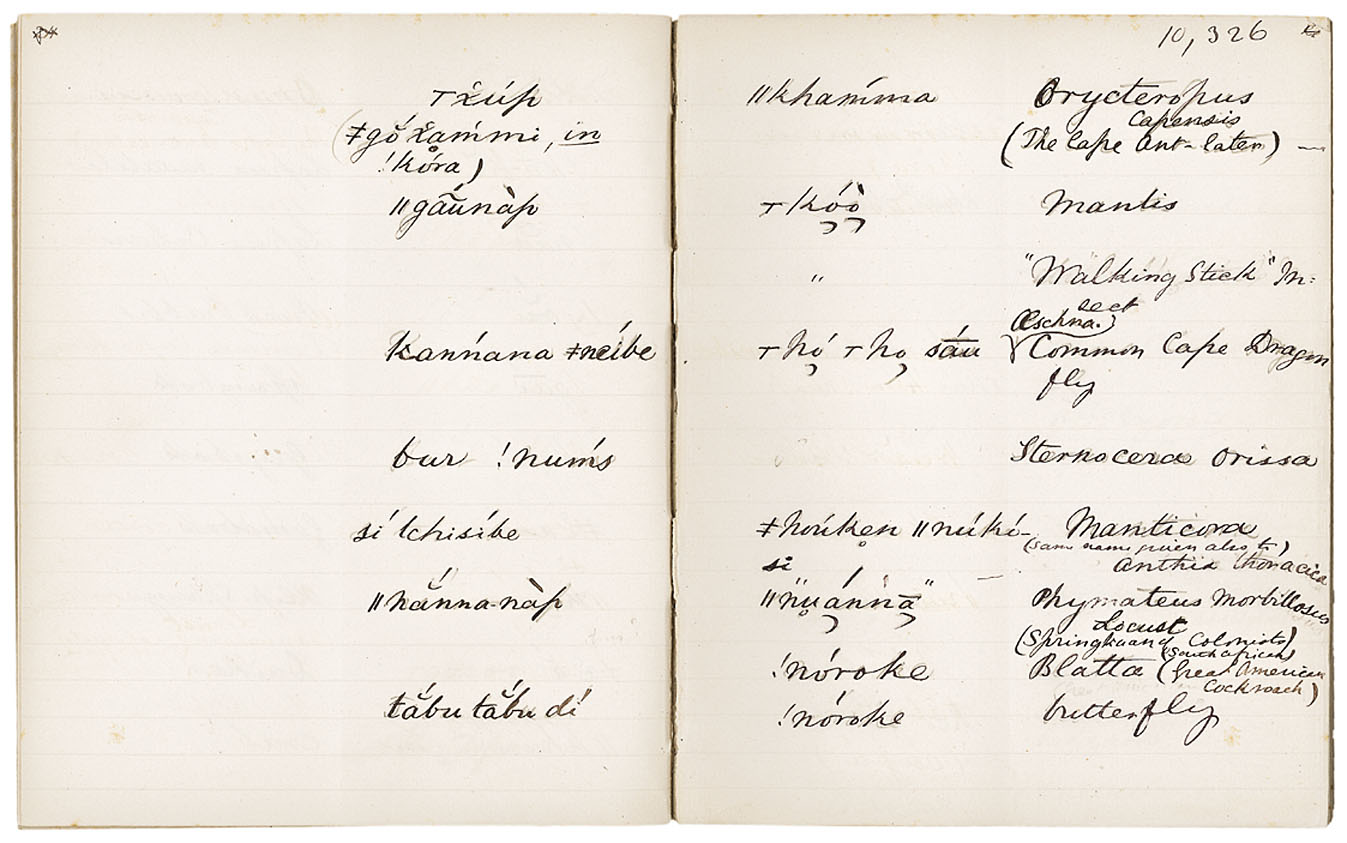 ⊤x̌úp
(ǂgǒ x̌ammi, in
!kóra)
ǁgãunàp
kannana ǂneíbe
bur !numś
sí lchisíbe
ǁhǎnna-nàp
tǎbu tǎbu dí
10,326
ǁkhamḿa Orycteropus
Capensis
(The Cape Ant-Eater) —
⊤kóò Mantis
" "Walking Stick" In=
sect
Æschna.}
⊤hó ⊤ho sáu Common Cape Dragon
fly
Sternocera orissa
ǂhoúken ǁnúkí- Manticora
(same name given also to)
si Anthia thoracica
ǁ"nuánna" Phymateus Morbillosus
Locust
(Springkaan of Colonists)
(South African)
!nóroke Blatta (Great American
Cockroach)
!nóroke butterfly